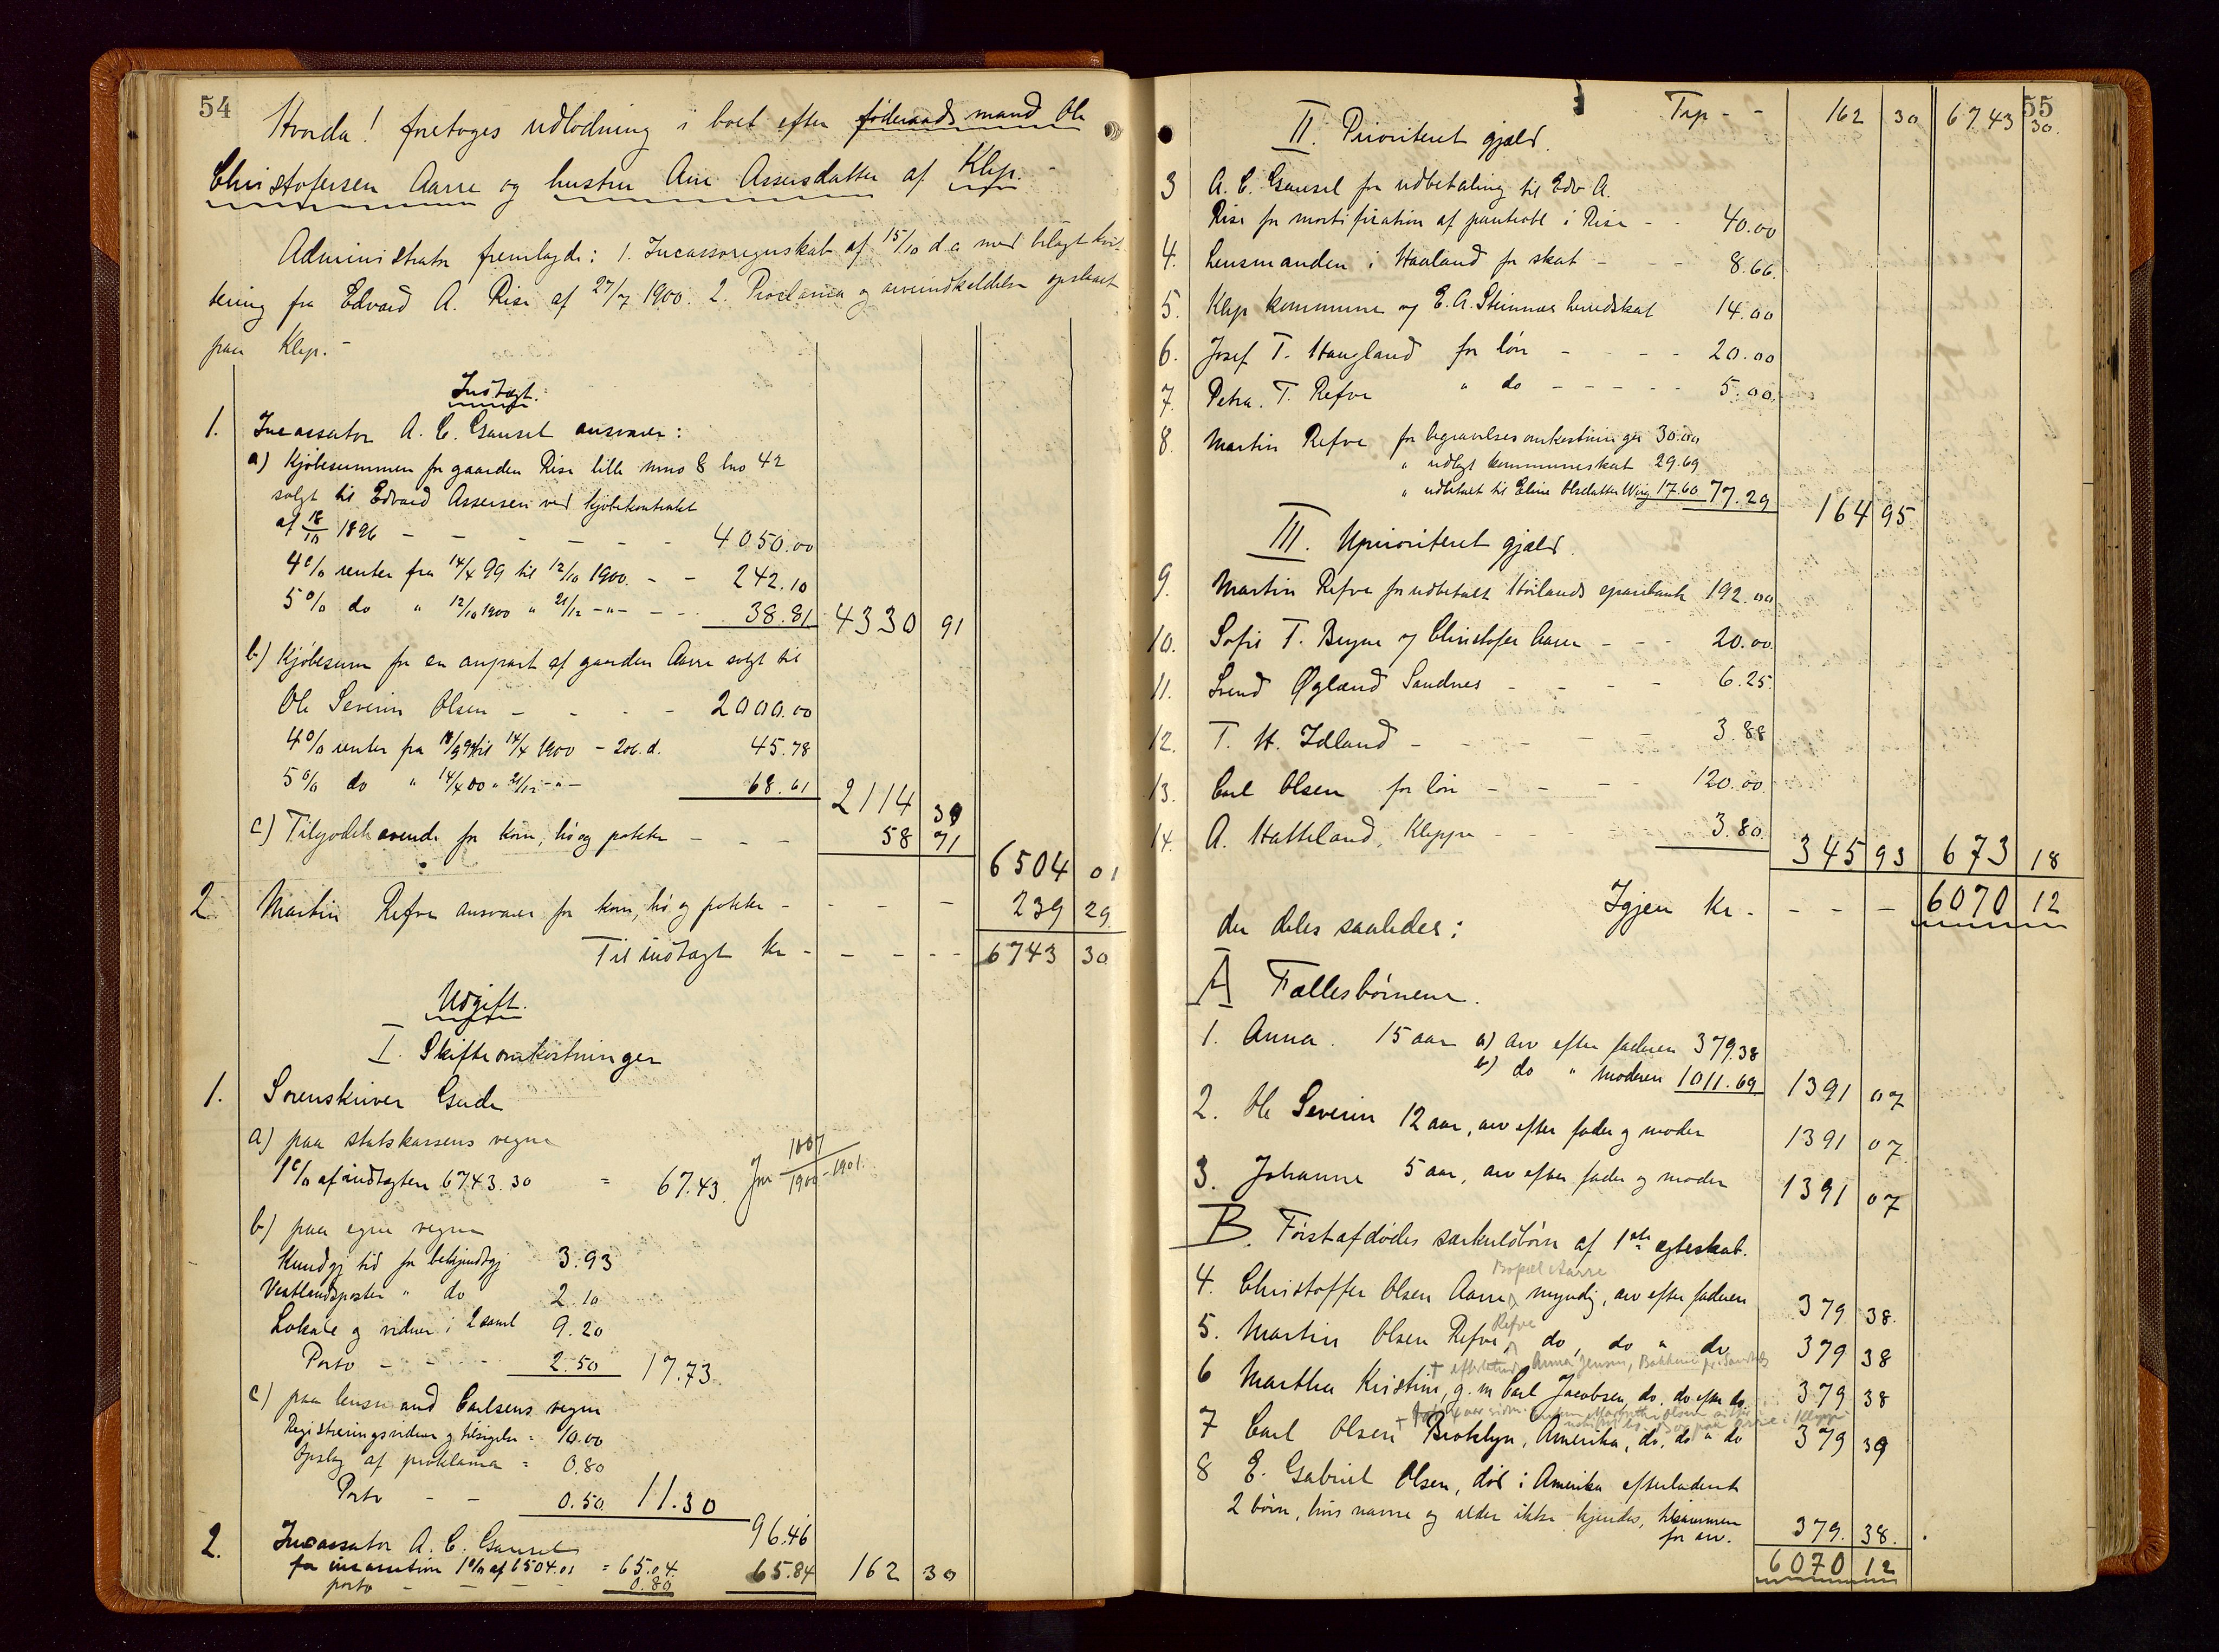 54
Hvorda! foretoges udlodning i boet efter føderaadsmand Ole
Christofersen Aarre og hustru Ane Assersdatter af Klep.-
Administrator fremlagde: 1. Incassoregnskab af 15/10 d.a. med bilagt kvit-
tering fra Edvard A. Rise af 27/7 1900. 2. Proclama og arveindkaldelse opslaaet
paa Klep.-
Indtægt:
1. Incassator A. C. Gausel ansvarer:
a) Kjøbesummen for gaarden Rise lille mno 8 bno 42
solgt til Edvard Assersen ved kjøbekontrakt
af 18/10 1896 - - - - - - 4050.00
4% renter fra 14/4 99 til 12/10 1900. - - 242.10
5% do " 12/10 1900 " 21/12 -"- - - 38.81 4330 91
b) Kjøbesum for en anpart af gaarden Aarre solgt til
Ole Severin Olsen - - - - 2000.00
4% renter fra 18/9 99 til 14/4 1900 - 206 d. 45.78
5% do " 14/4 00 " 21/12 -"- 68.61 2114 39
c) Tilgodehavende for korn, hø og poteter - - - 58 71
6504 01
2 Martin Refve ansvarer for korn, hø og poteter - - - - 239 29
Til indtægt kr - - - - - 6743 30
Udgift.
I. Skifteomkostninger
1. Sorenskriver Gude
a) paa statskassens vegne
1% af indtægten 6743.30 = 67.43 Jnr 1007/1900-1901.
b) paa egne vegne
Kundgj tid for bekjendtgj 3.93
Vestlandsposten " do 2.10
Lokale og vidner i 2 saml 9.20
Porto - - - - 2.50 17.73
c) paa lensmand Carlsens vegne
Registreringsvidner og tilsigelse = 10.00
Opslag af proklama = 0.80
Porto - - 0.50 11.30
96.46
2. Incassator A. C. Gausel
for incassation 1% af 6504.01 = 65.04.
porto - - - - 0.80 65.84 162 30
55
Trp - - 162 30 6743 30.
II. Prioriteret gjæld.
3 A. C. Gausel for udbetaling til Edv. A.
Rise for mortifikation af pantobl i Rise - - 40.00
4. Lensmanden i Haaland for skat - - - 8.66.
5. Klep kommune og E. A. Steinnes herredskat 14.00
6. Josef T. Haugland for løn - - - - 20.00
7. Petra T. Refve " do - - - - - 5.00.
8. Martin Refve for begravelsesomkostninger 30.00
" udlagt kommuneskat 29.69
" udbetalt til Eline Olsdatter Wiig 17.60 77.29 164 95
III. Uprioriteret gjæld.
9. Martin Refve for udbetalt Høilands sparebank 192.00
10. Sofie T. Bryne og Christofer Aarre - - - 20.00.
11. Svend Øgland Sandnes - - - - 6.25.
12. T. H. Idland - - - - - 3.88
13. Carl Olsen for løn - - - - 120.00
14. A. Hatteland, Kleppe - - - 3.80 345 93 673 18
Igjen kr - - - - 6070 12
der deles saaledes:
A Fællesbørnene.
1. Anna. 15 aar a) arv efter faderen 379.38
b) do " moderen 1011.69 1391 07
2. Ole Severin 12 aar, arv efter fader og moder 1391 07.
3. Johanne 5 aar, arv efter fader og moder 1391 07
B. Førstafdødes særkuldbørn af 1ste egteskab.
Bopæl Aarre
4. Christoffer Olsen Aarre, myndig, arv efter faderen 379 38.
Refve
5. Martin Olsen Refve, do, do " do 379 38
† efterlatende Anna Jensen,
6 Martha Kristine, g. m. Carl Jacobsen, do. do efter do. 379 38
7 Carl Olsen Broklyn, Amerika, do, do " do 379 39
8 E. Gabriel Olsen, død i Amerika efterladende
2 børn, hvis navne og alder ikke kjendes, tilsammen
for arv. 379. 38.
6070 12